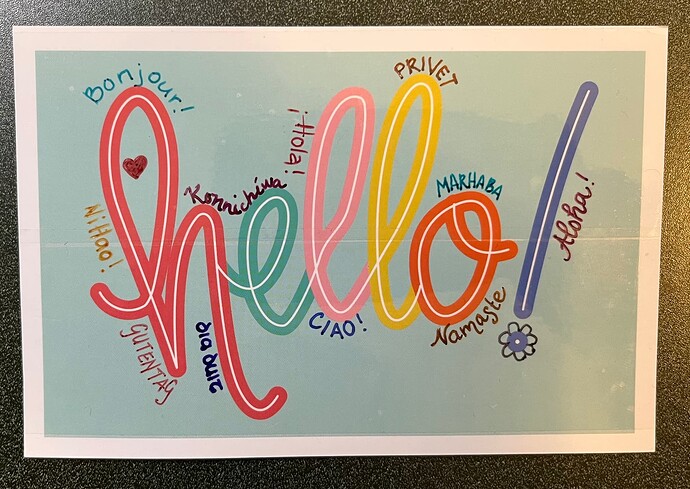 Bonjour!
PRIVET
¡Hola!
Konnichiwa
MARHABA
NiHao!
hello!
Aloha!
GUTENTAG
CIAO!
Namaste